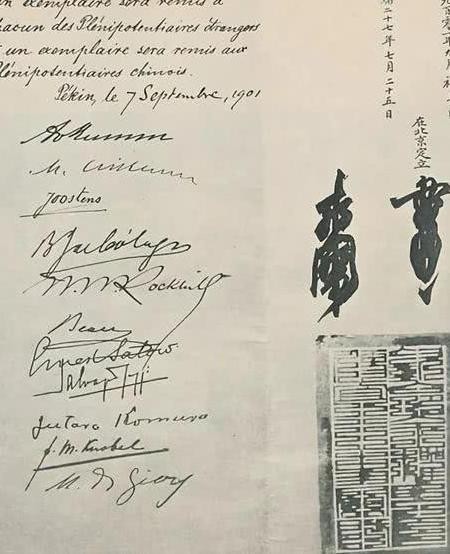 un exemplaire sera remis à
hacun des Plénipotentiaires étrangers
t un exemplaire sera remis aux
lénipotentiaires chinois.
Pékin, le 7 Septembre, 1901
A v Mumm
M. Czikann
Joostens
B J de Cólogan
W. W. Rockhill
Beau
Ernest Satow
Salvago
Jutaro Komura
F. M. Knobel
M. de Giers
在北京定立
二十七年七月二十五日